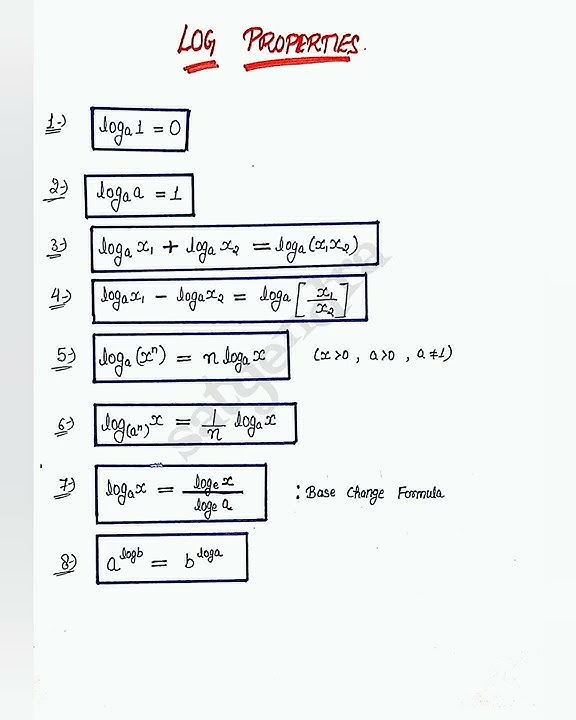 LOG PROPERTIES.
1-) logₐ 1 = 0
2-) logₐ a = 1
3-) logₐ x₁ + logₐ x₂ = logₐ (x₁x₂)
4-) logₐx₁ − logₐx₂ = logₐ [x₁/x₂]
5-) logₐ(xⁿ) = n logₐ x (x>0, a>0, a≠1)
6-) log₍ₐⁿ₎ x = 1/n logₐ x
7-) logₐ x = logₑ x / logₑ a : Base Change Formula
8-) a^logb = b^loga